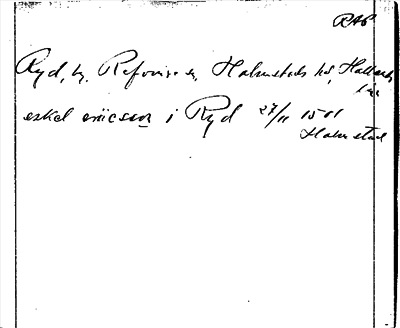 RAP
Ryd, by, Refvinge sn, Halmstads hd, Hallands
län
eskel ericson i Ryd 27/11 1581
Halmstad